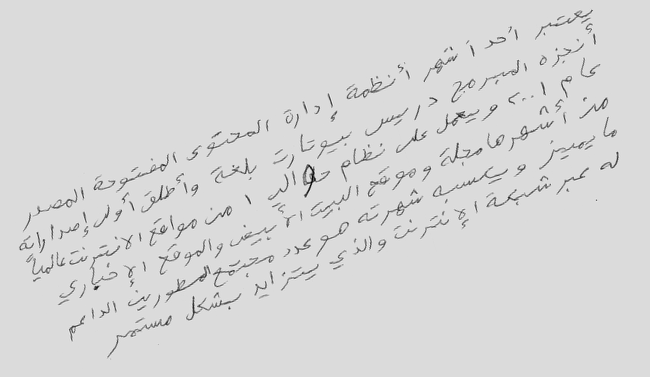 يعتبر أحد أشهر أنظمة إدارة المحتوى المفتوحة المصدر
أنجزه المبرمج دريس بيوتارت بلغة وأطلق أولى إصداراته
عام ٢٠٠١ ويعمل على نظام حوالي ١ من مواقع الانترنت عالمياً
من أشهرها مجلة وموقع البيت الأبيض والموقع الإخباري
ما يميز ويكسبه شهرته هو عدد مجتمع المطورين الداعم
له عبر شبكة الإنترنت والذي يتزايد بشكل مستمر